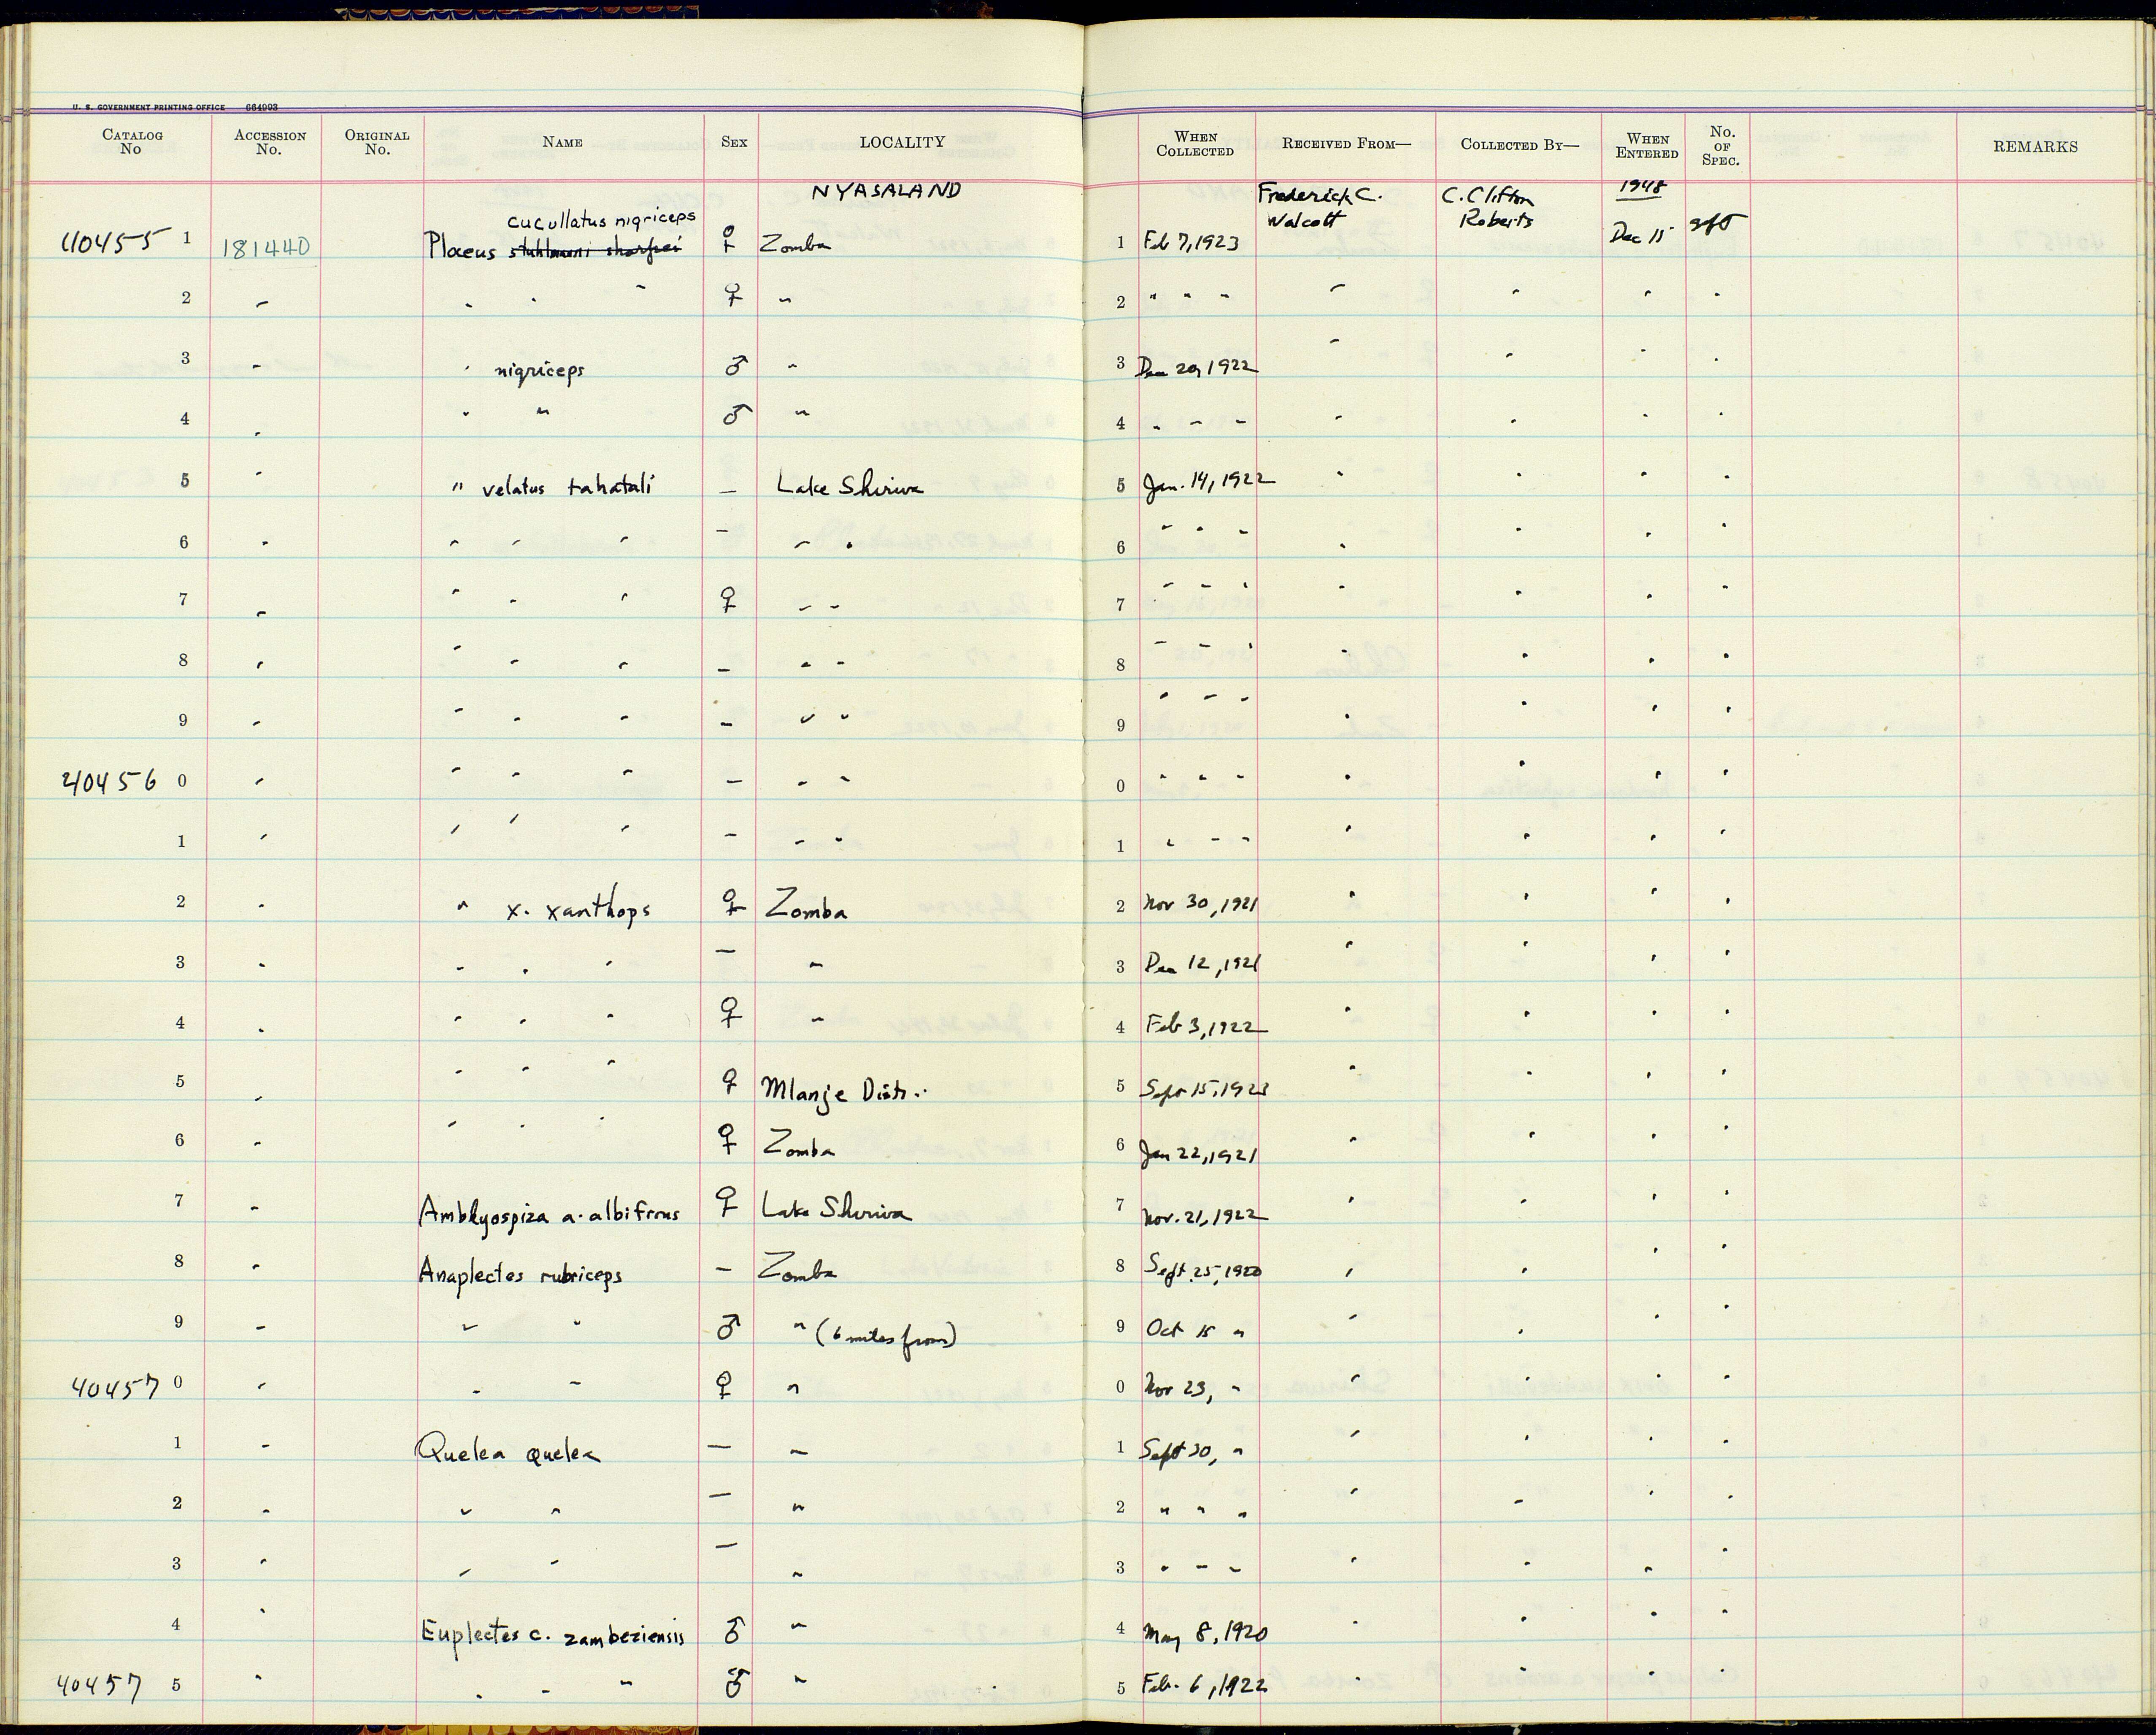 U. S. GOVERNMENT PRINTING OFFICE 664993
CATALOG No ACCESSION No. ORIGINAL No. NAME SEX LOCALITY WHEN COLLECTED RECEIVED FROM— COLLECTED BY— WHEN ENTERED No. OF SPEC. REMARKS
NYASALAND Frederick C. Walcott C. Clifton Roberts 1948
cucullatus nigriceps
40455 1 181440 Ploceus stuhlmanni sharpei ♀ Zomba 1 Feb 7, 1923 Dec 15 gift
2 " " " " ♀ " 2 " " " " " " "
3 " " nigriceps ♂ " 3 Dec 20, 1922 " " " "
4 " " " ♂ " 4 " " " " " " "
5 " " velatus tahatali — Lake Shirwa 5 Jan. 14, 1922 " " " "
6 " " " " — " " 6 " " " " " " "
7 " " " " ♀ " " 7 " " " " " " "
8 " " " " — " " 8 " " " " " " "
9 " " " " — " " 9 " " " " " " "
40456 0 " " " " — " " 0 " " " " " " "
1 " " " " — " " 1 " " " " " " "
2 " " x. xanthops ♀ Zomba 2 Nov 30, 1921 " " " "
3 " " " " — " 3 Dec 12, 1921 " " " "
4 " " " " ♀ " 4 Feb 3, 1922 " " " "
5 " " " " ♀ Mlanje Distr. 5 Sept 15, 1923 " " " "
6 " " " " ♀ Zomba 6 Jan 22, 1921 " " " "
7 " Amblyospiza a. albifrons ♀ Lake Shirwa 7 Nov. 21, 1922 " " " "
8 " Anaplectes rubriceps — Zomba 8 Sept. 25, 1920 " " " "
9 " " " ♂ " (6 miles from) 9 Oct 15 " " " " "
40457 0 " " " ♀ " 0 Nov 23, " " " " "
1 " Quelea quelea — " 1 Sept 30, " " " " "
2 " " " — " 2 " " " " " " "
3 " " " — " 3 " " " " " " "
4 " Euplectes c. zambeziensis ♂ " 4 May 8, 1920 " " " "
40457 5 " " " " ♂ " 5 Feb. 6, 1922 " " " "